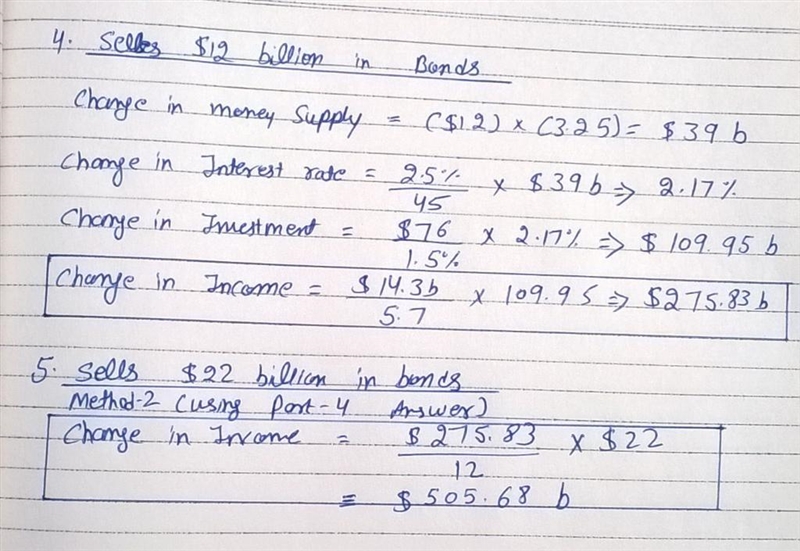 4. Sells $12 billion in Bonds
Change in money Supply = ($12) x (3.25) = $39 b
Change in Interest rate = 2.5% / 45 x $39b => 2.17%
Change in Investment = $76 / 1.5% x 2.17% => $109.95 b
Change in Income = $14.3b / 5.7 x 109.95 => $275.83 b
5. Sells $22 billion in bonds
Method-2 (using Part-4 Answer)
Change in Income = $275.83 / 12 x $22
= $505.68 b